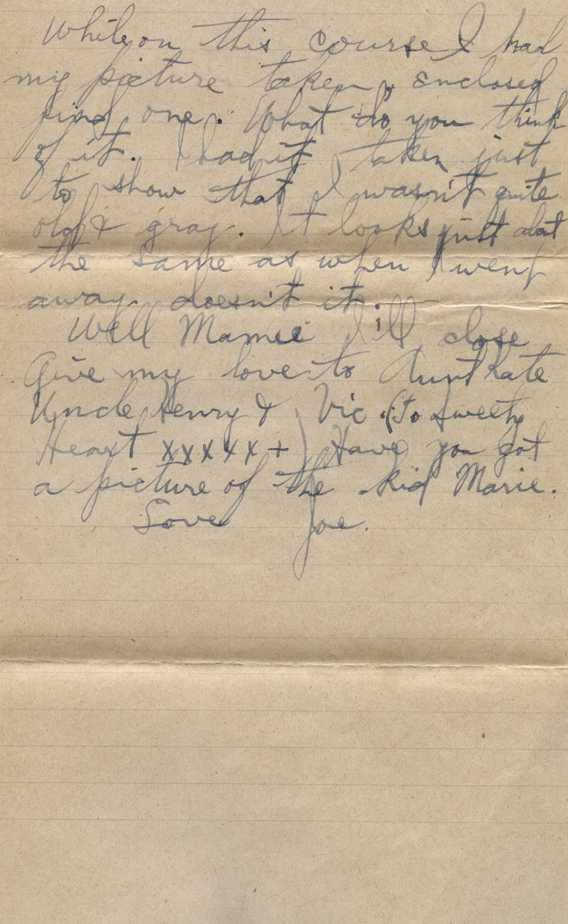 While on this course I had
my picture taken & enclosed
find one. What do you think
of it. I had it taken just
to show that I wasn't quite
old & gray. It looks just about
the same as when I went
away doesn't it.
Well Mamie I'll close
Give my love to Aunt Kate
Uncle Henry & Vic. (To Sweety
Heart xxxxx+) Have you got
a picture of the kid Marie.
Love Joe.